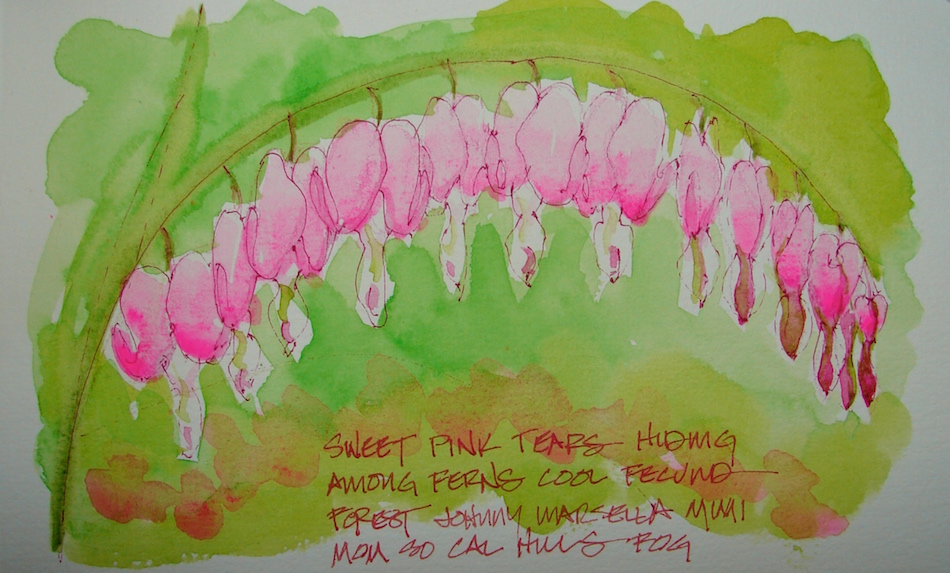 SWEET PINK TEARS HIDING
AMONG FERNS COOL FECUND
FOREST JOHNNY MARSELLA MIMI
MOM SO CAL HILLS FOG